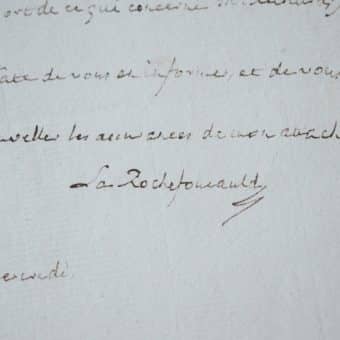 ort de ce qui concerne
hâte de vous en informer, et de vous
uveller les assurances de mon attach
La Rochefoucauld
ercredi.